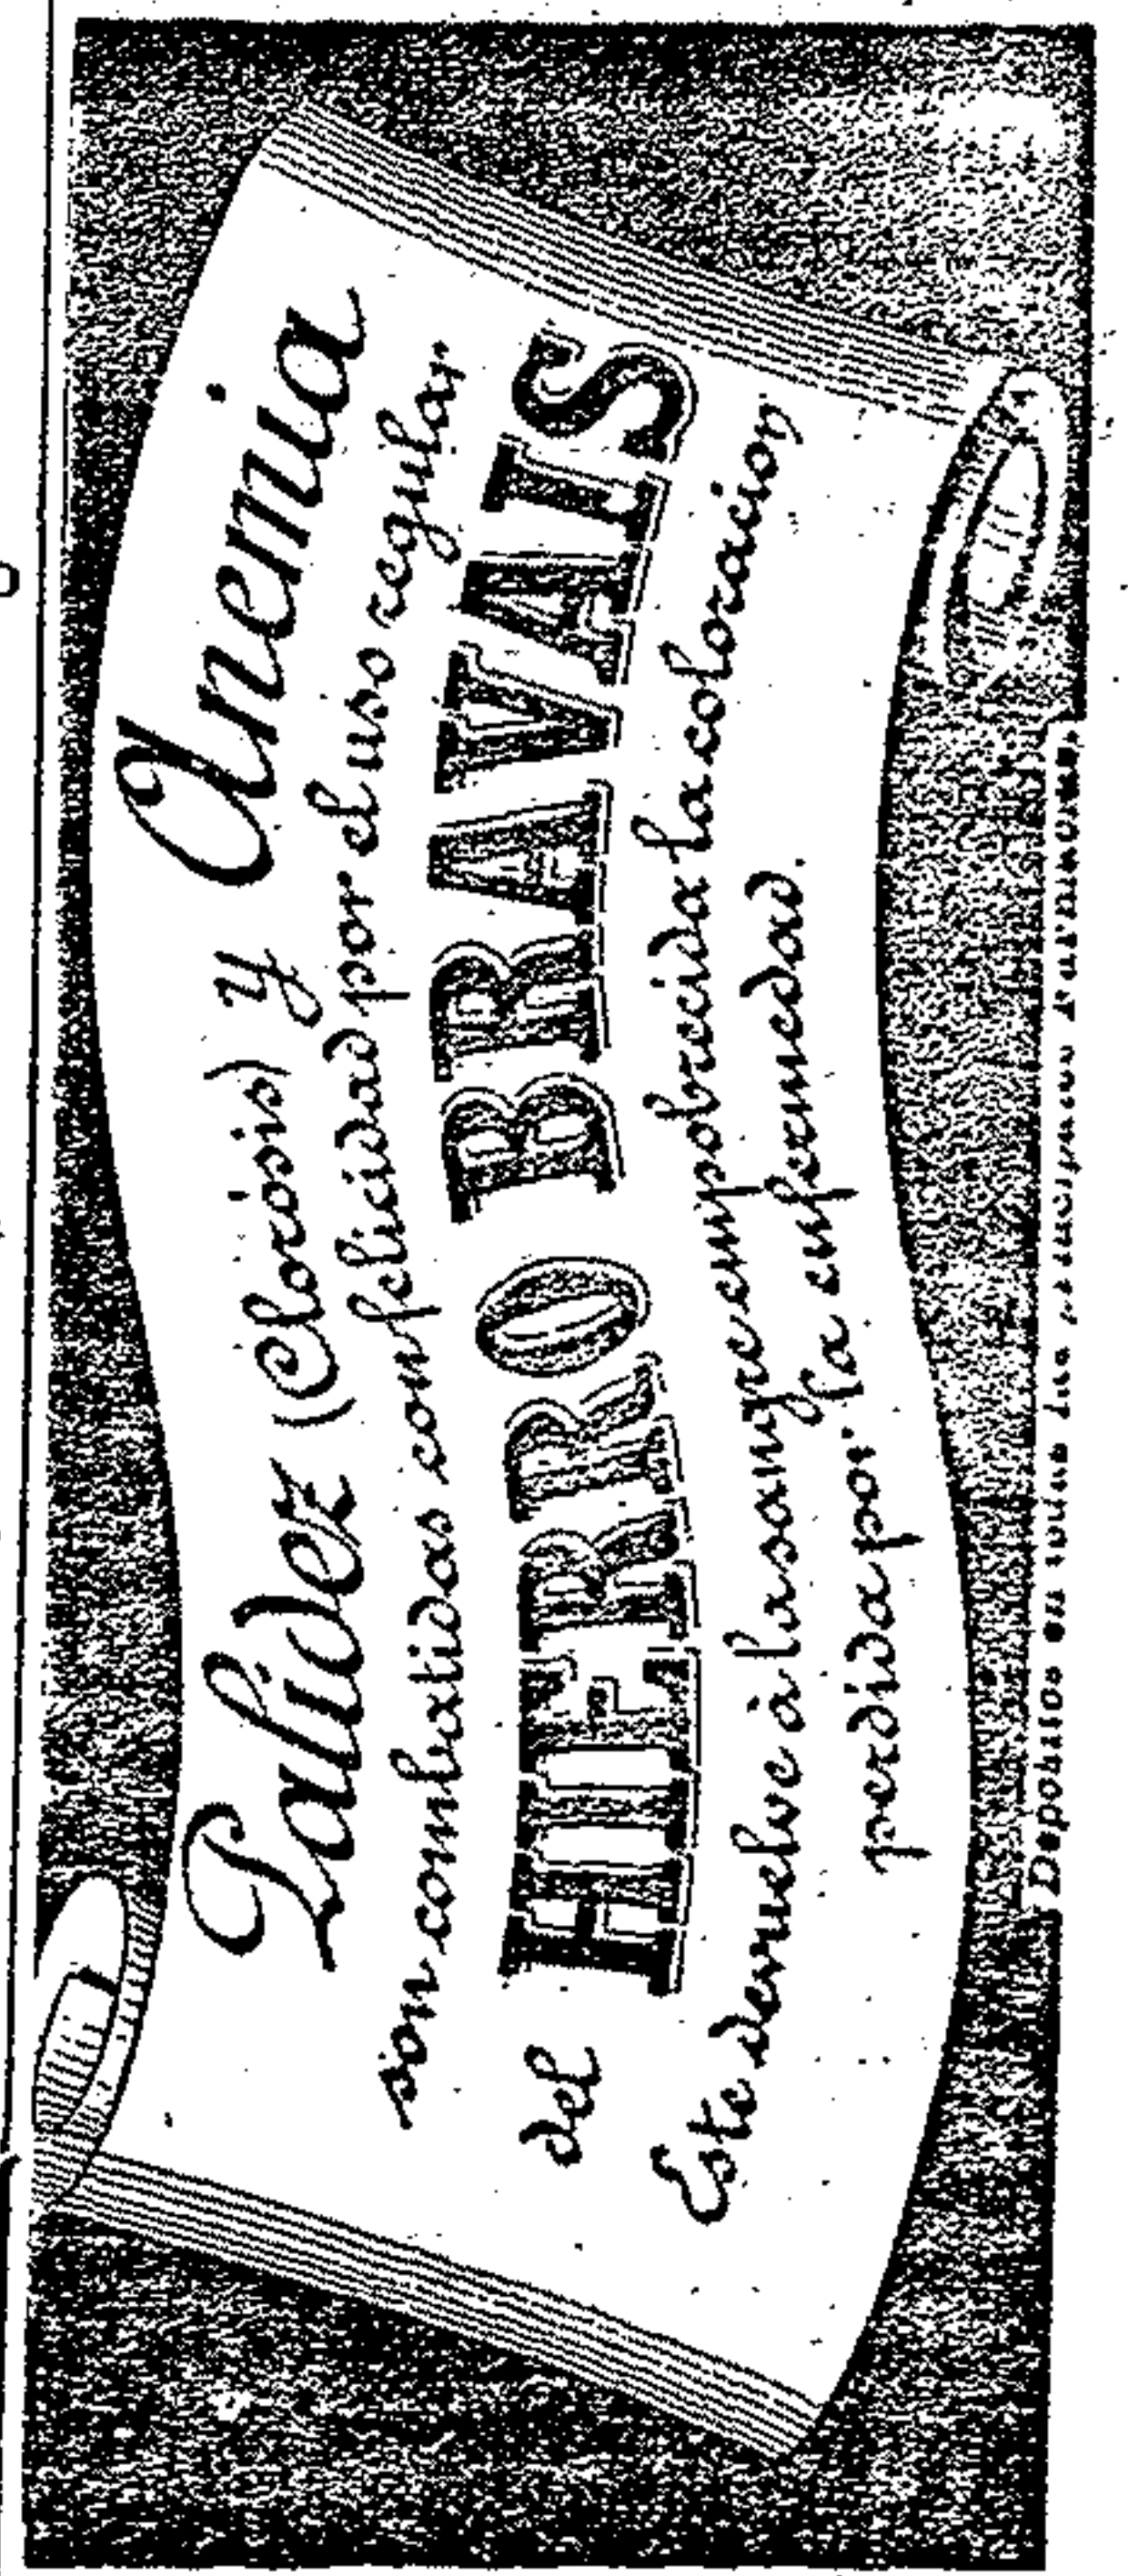 Palidez (Clorosis) y Anemia
son combatidas con felicidad por el uso regular
del HIERRO BRAVAIS
Este devuelve à la sangre empobrecida la coloracion
perdida por la enfermedad.
Depositos en todas las principales Farmacias.